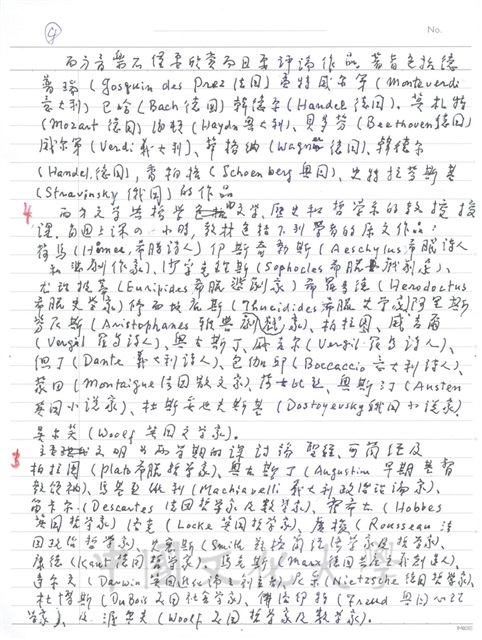 No.
西方音樂不僅要欣賞而且要評論作品,著旨包括德
普瑞(Josquin des Prez法國)蒙特威尔第(Monteverdi
意大利)巴哈(Bach德国)韓德尔(Handel德國)、莫札特
(Mozart德國)海頓(Haydn奧大利)、貝多芬(Beethoven德国)
威尔第(Verdi義大利)、華格納(Wagner德国)、韓德尔
(Handel.德国),荀柏格(Schoenberg奥国)、史特拉芬斯基
(Stravinsky俄国)的作品
4 西方文学 哲学 文学,歷史和哲学系的教授授
課,每週上課四小時,教材包括下列學者的原文作品:
荷馬(Homer希腊詩人)伊斯奇勒斯(Aeschylus希腊詩人
和 作家)、沙孚克理斯(Sophocles希腊 )、
尤里披蒂(Euripides希腊 家)希羅多德(Herodoctus
希腊史学家)修西底庇斯(Thucidides希腊史学家)阿里斯
芬尼斯(Aristophanes 劇家)、柏拉圖、威吉爾
(Vergil罗马詩人)、奥古斯丁、 (Vergil罗马詩人)、
但丁(Dante義大利詩人)、包伽邱(Boccaccio意大利詩人)、
蒙田(Montaigne法国散文家)、莎士比亞、奥斯汀(Austen
英國小说家)、杜斯妥也夫斯基(Dostoyevsky俄国小说家)
吳尔芙(Woolf英国文学家)。
5 文明 两学期的课討論聖經、可蘭經及
柏拉圖(Plato希腊哲学家)、奥古斯丁(Augustine早期基督
教領袖)、馬基亚維利(Machiavelli義大利政治 論家)、
笛卡尔(Descartes法國哲学家及数学家)、霍布士(Hobbes
英國哲学家)洛克(Locke英國哲学家)、盧梭(Rousseau法
国政治哲学家)、 (Smith 经济学家及哲学家)、
康德(Kant德国哲学家)、馬克斯(Marx德国共产主义創造人)、
達尔文(Darwin 英国 )、尼采(Nietzsche德国哲学家)、
杜博斯(DuBois美国社会学家)、佛洛伊特(Freud奥国心理
学家)、及渥尔夫(Woolf 国哲学家及数学家)。
中國文化大學